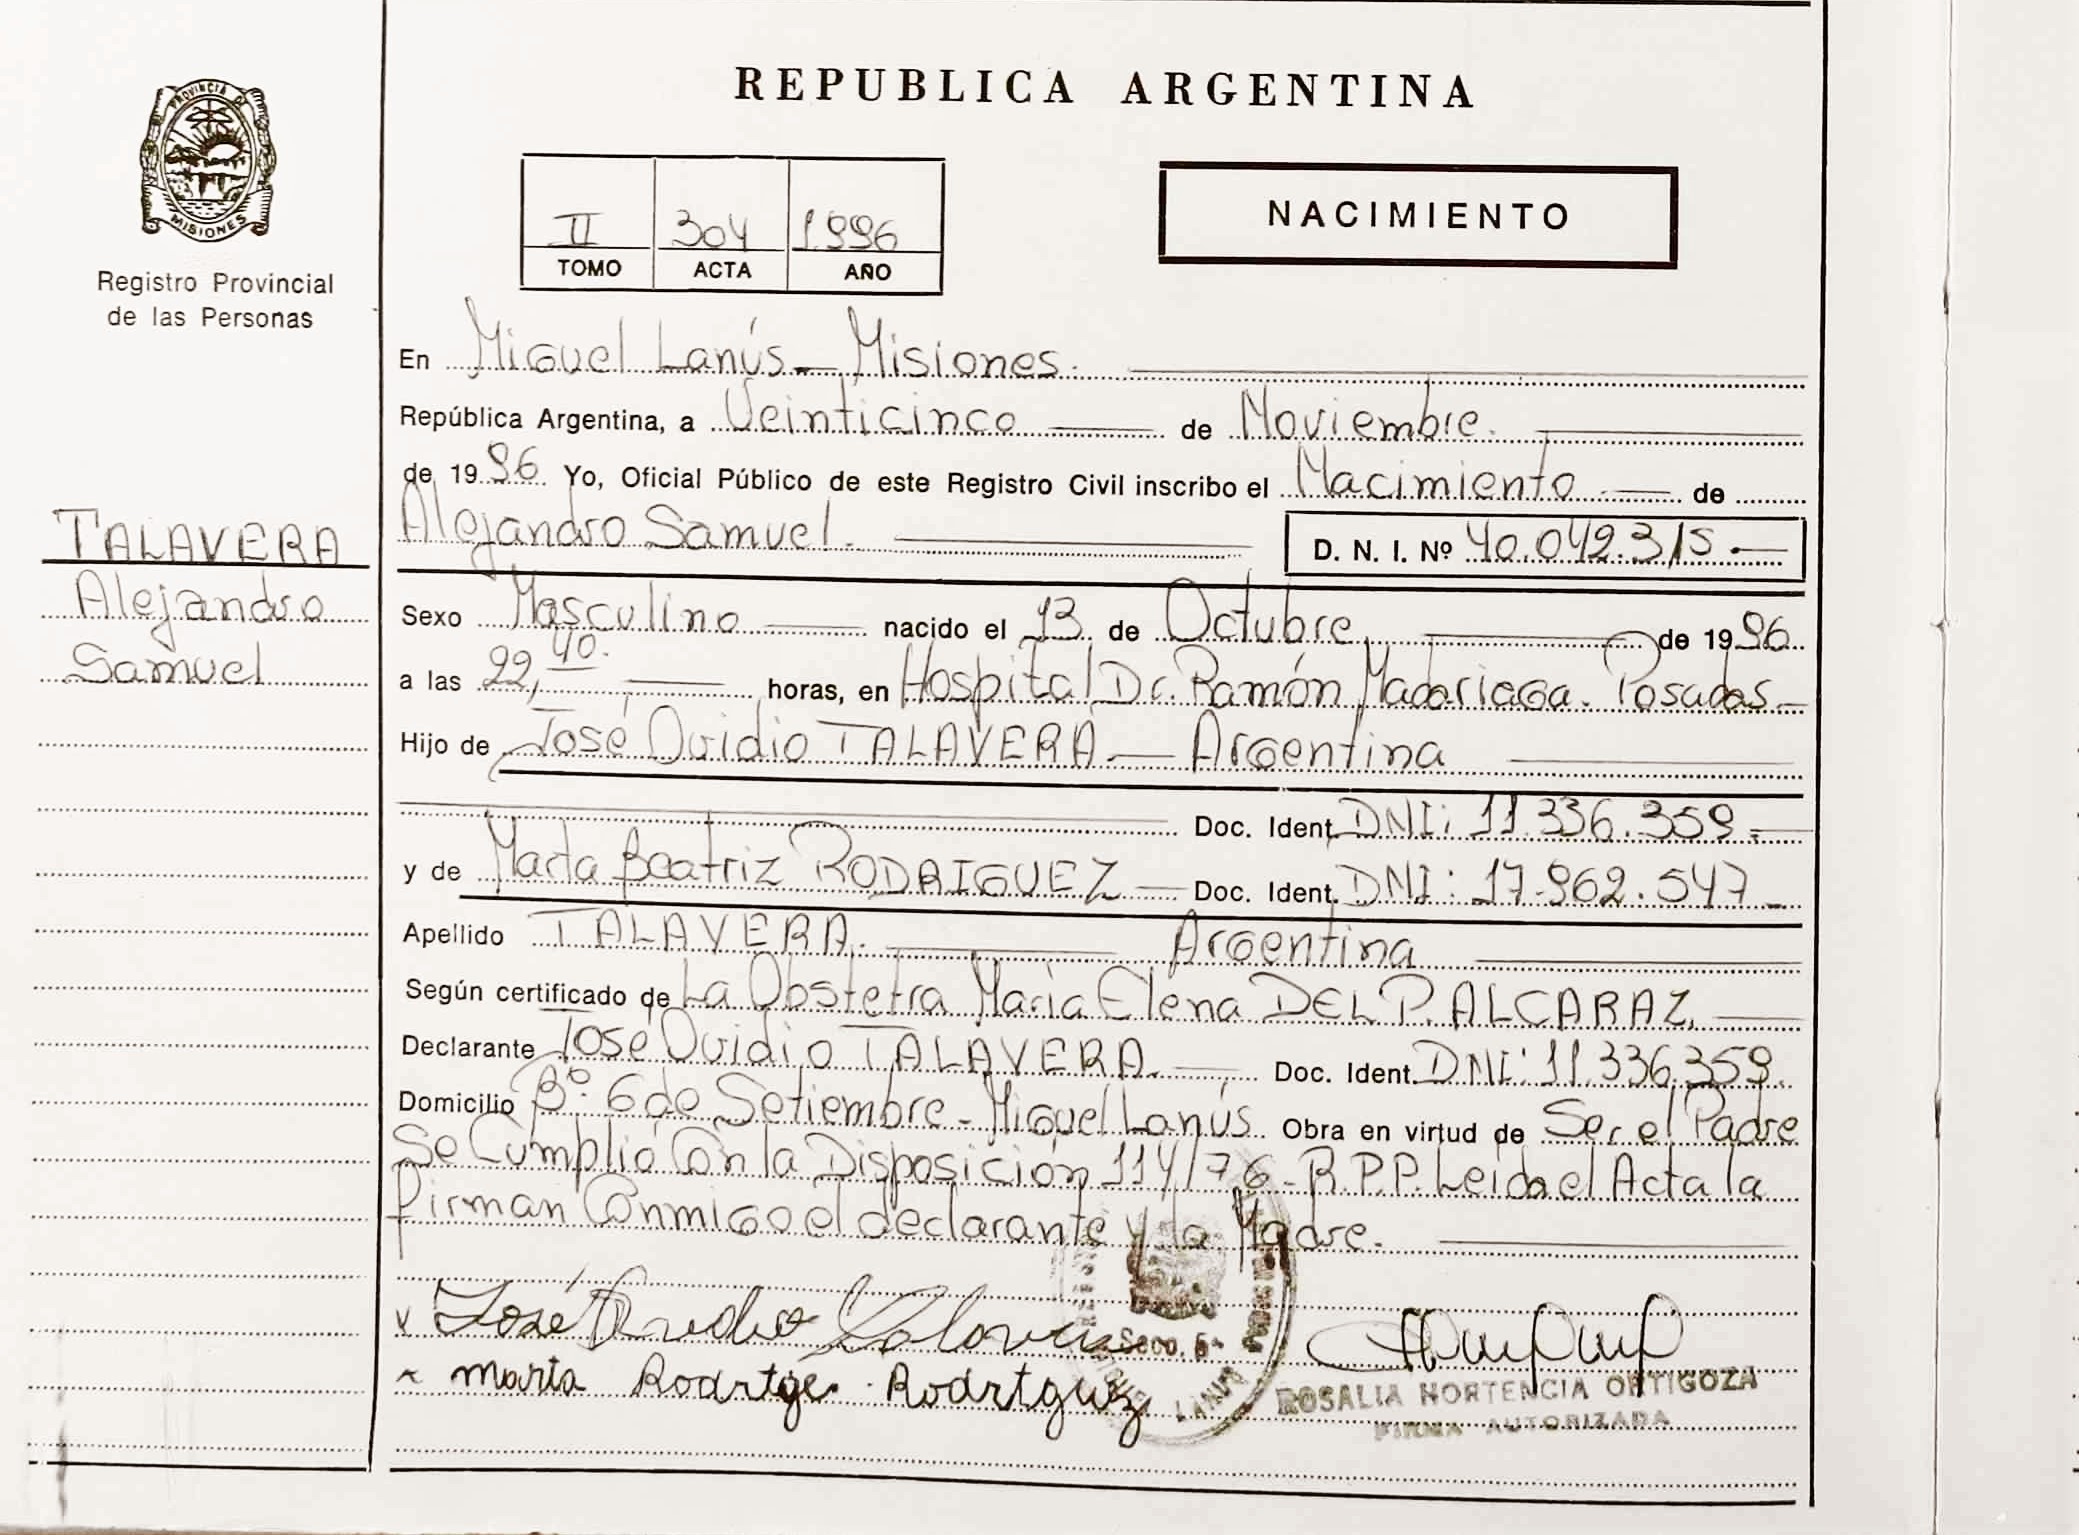 REPUBLICA ARGENTINA
PROVINCIA DE
MISIONES
Registro Provincial
de las Personas
NACIMIENTO
II 304 1996
TOMO ACTA AÑO
En Miguel Lanús - Misiones.
República Argentina, a Veinticinco de Noviembre.
de 1996. Yo, Oficial Público de este Registro Civil inscribo el Nacimiento de
Alejandro Samuel. D. N. I. Nº 40.042.315.-
TALAVERA
Alejandro
Samuel
Sexo Masculino nacido el 13 de Octubre de 1996.
a las 22,40. horas, en Hospital Dr. Ramón Madariaga. Posadas-
Hijo de José Ovidio TALAVERA - Argentina
Doc. Ident. DNI: 11.336.359.-
y de Marta Beatriz RODRIGUEZ - Doc. Ident. DNI: 17.962.547-
Apellido TALAVERA. Argentina
Según certificado de La Obstetra María Elena DEL P. ALCARAZ.
Declarante José Ovidio TALAVERA. Doc. Ident. DNI: 11.336.359.
Domicilio Bº. 6 de Setiembre - Miguel Lanús. Obra en virtud de Ser el Padre
Se Cumplió Con la Disposición 114/76 - R.P.P. Leida el Acta la
firman Conmigo el declarante y la Madre.
José Ovidio Talavera
marta Rodrtge. Rodrtguez
Secc. 5ª
LANUS
ROSALIA HORTENCIA ORTIGOZA
FIRMA AUTORIZADA